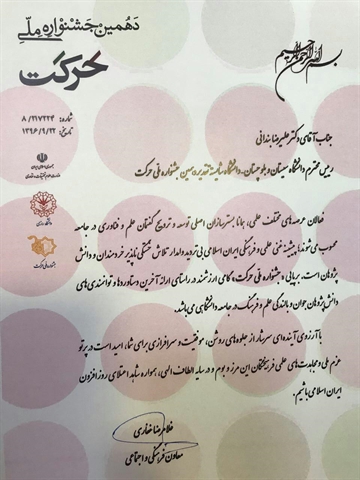 دهمین جشنواره ملّی
حرکت
بسم الله الرحمن الرحیم
شماره: ۸/۲۱۷۲۲۴
تاریخ: ۱۳۹۶/۹/۲۲
جناب آقای دکتر علیرضا بندانی
رییس محترم دانشگاه سیستان و بلوچستان، دانشگاه شایسته تقدیر دهمین جشنواره ملی حرکت
فعالان عرصه‌های مختلف علمی، همانا بسترسازان اصلی توسعه و ترویج گفتمان علم و فناوری در جامعه
محسوب می‌شوند؛ پیشینه غنی علمی و فرهنگی ایران اسلامی بی‌تردید وامدار تلاش خستگی ناپذیر خردمندان و دانش
پژوهان است. برپایی «جشنواره ملی حرکت» گامی ارزشمند در راستای ارائه آخرین دستاوردها و توانمندی های
دانش‌پژوهان جوان و بالندگی علم و فرهنگ در جامعه دانشگاهی می‌باشد.
با آرزوی آینده‌ای سرشار از جلوه‌های روشن، موفقیت و سرافرازی برای شما، امید است در پرتو
عزم ملی و مجاهدت‌های علمی فرهیختگان این مرز و بوم و در سایه الطاف الهی، همواره شاهد اعتلای روز افزون
ایران اسلامی باشیم.
غلامرضا غفاری
معاون فرهنگی و اجتماعی